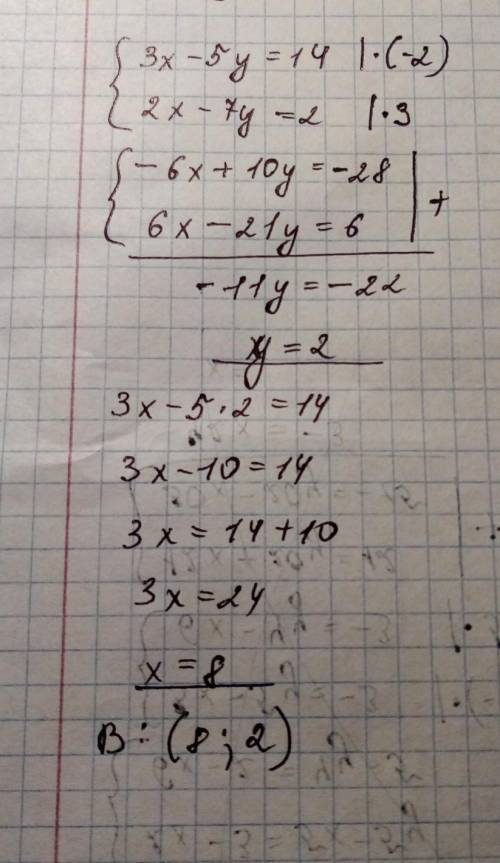 3x - 5y = 14 | · (-2)
2x - 7y = 2 | · 3
- 6x + 10y = -28
6x - 21y = 6 | +
- 11y = - 22
y = 2
3x - 5 · 2 = 14
3x - 10 = 14
3x = 14 + 10
3x = 24
x = 8
В: (8 ; 2)